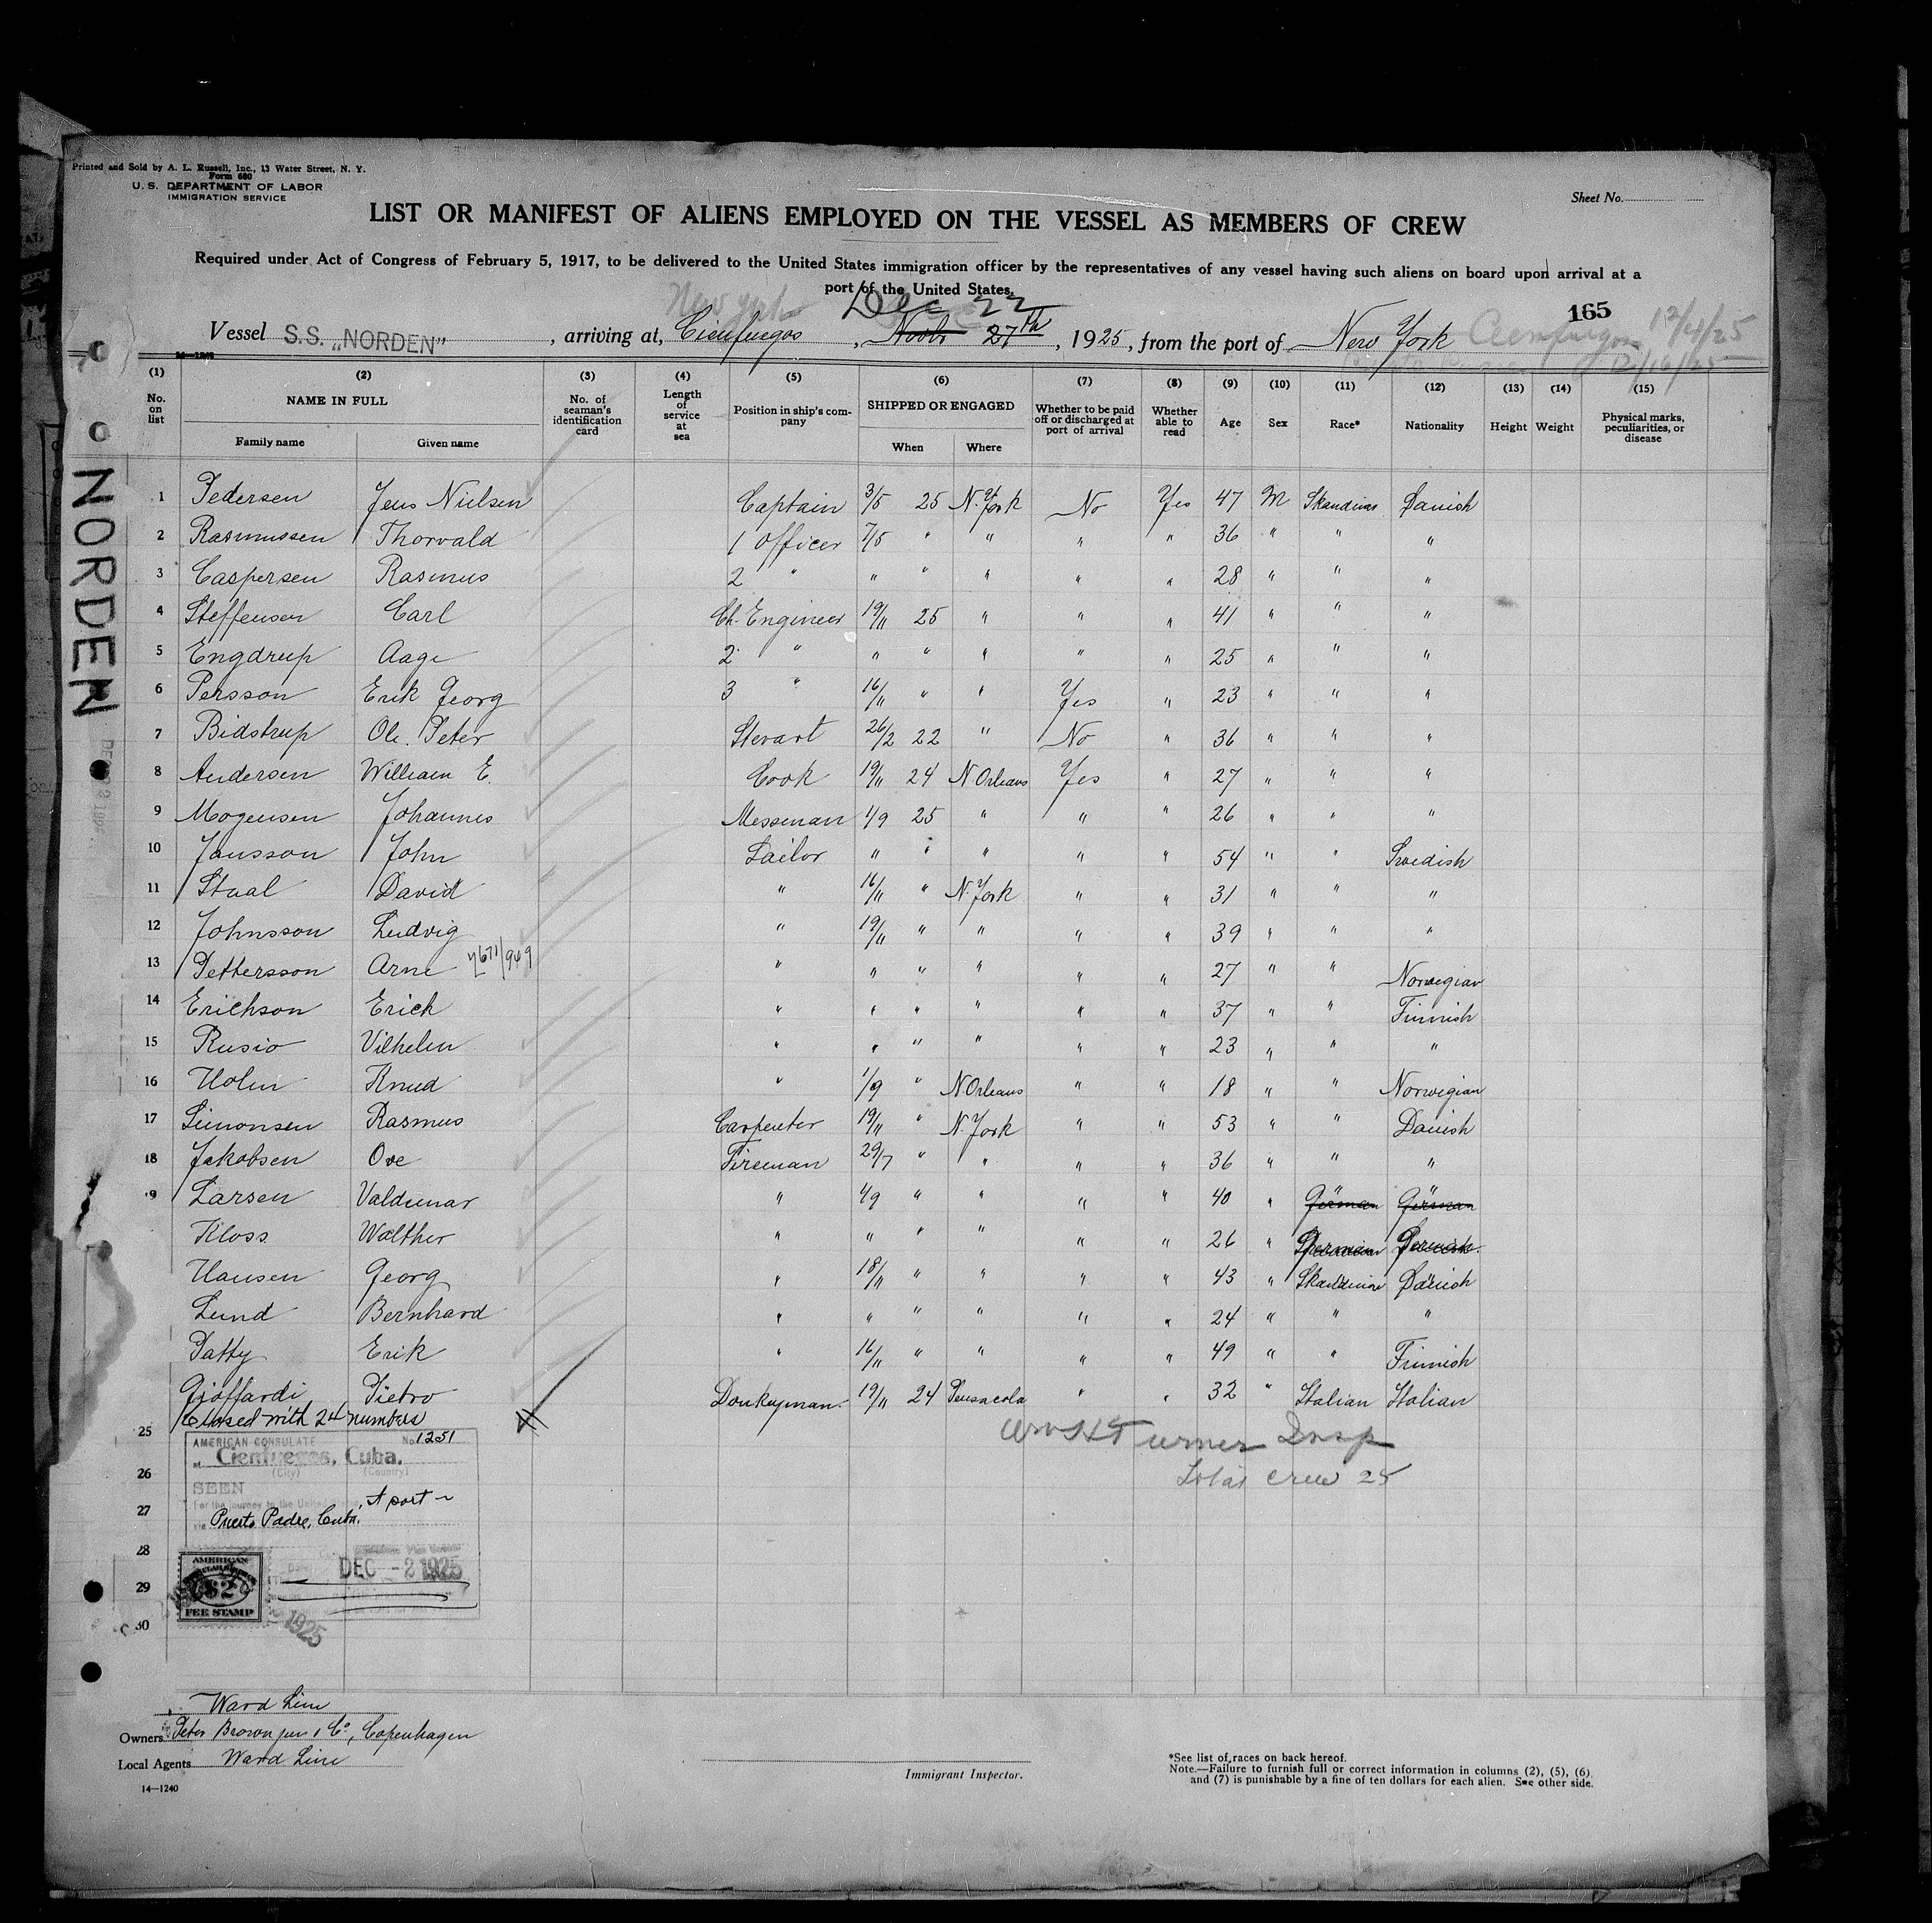 Printed and Sold by A. L. Russell, Inc., 13 Water Street, N. Y.
Form 680
U. S. DEPARTMENT OF LABOR
IMMIGRATION SERVICE
Sheet No.
LIST OR MANIFEST OF ALIENS EMPLOYED ON THE VESSEL AS MEMBERS OF CREW
Required under Act of Congress of February 5, 1917, to be delivered to the United States immigration officer by the representatives of any vessel having such aliens on board upon arrival at a
port of the United States.
165
New York Dec 22
Vessel S.S. „NORDEN” , arriving at, Cienfuegos , Novbr 27th , 1925, from the port of New York Cienfuegos 12/4/25
12/16/25
14—1240
(1) (2) (3) (4) (5) (6) (7) (8) (9) (10) (11) (12) (13) (14) (15)
No. on list NAME IN FULL Family name Given name No. of seaman's identification card Length of service at sea Position in ship's company SHIPPED OR ENGAGED When Where Whether to be paid off or discharged at port of arrival Whether able to read Age Sex Race* Nationality Height Weight Physical marks, peculiarities, or disease
NORDEN
1 Pedersen Jens Nielsen Captain 3/5 25 N. York No Yes 47 M Skandinav Danish
2 Rasmussen Thorvald 1 Officer 7/5 " " " " 36 " " "
3 Caspersen Rasmus 2 " " " " " " 28 " " "
4 Steffensen Carl Ch. Engineer 19/11 25 " " " 41 " " "
5 Engdrup Aage 2 " " " " " " 25 " " "
6 Persson Erik Georg 3 " 16/11 " " Yes " 23 " " "
7 Bidstrup Ole Peter Stevart 26/2 22 " No " 36 " " "
8 Andersen William E. Cook 19/11 24 N. Orleans Yes " 27 " " "
9 Mogensen Johannes Messman 1/9 25 " " " 26 " " "
10 Jansson John Sailor " " " " " 54 " " Swedish
11 Staal David " 16/11 " N. York " " 31 " " "
12 Johnsson Ludvig " 19/11 " " " " 39 " " "
13 Pettersson Arne " " " " " " 27 " " Norwegian
14 Erichson Erick " " " " " " 37 " " Finnish
15 Rusio Vilhelm " " " " " " 23 " " "
16 Holm Knud " 1/9 " N. Orleans " " 18 " " Norwegian
17 Simonsen Rasmus Carpenter 19/11 " N. York " " 53 " " Danish
18 Jakobsen Ove Fireman 29/7 " " " " 36 " " "
19 Larsen Valdemar " 1/9 " " " " 40 " German German
Kloss Walther " " " " " " 26 "
Hansen Georg " 18/11 " " " " 43 " Skandinav Danish
Lund Bernhard " " " " " " 24 " " "
Patty Erik " 16/11 " " " " 49 " " Finnish
Gioffardi Pietro Donkeyman 19/11 24 Pensacola " " 32 " Italian Italian
Closed with 24 numbers
25
26
27
28
29
30
Turner Insp
Total crew 25
AMERICAN CONSULATE No. 1251
at Cienfuegos, Cuba.
(City) (Country)
SEEN
For the journey to the United States
Puerto Padre, Cuba.
DEC -2 1925
AMERICAN
$2
FEE STAMP
1925
Ward Line
Owners Peter Brown jun & Co., Copenhagen
Local Agents Ward Line
14—1240
Immigrant Inspector.
*See list of races on back hereof.
Note.—Failure to furnish full or correct information in columns (2), (5), (6)
and (7) is punishable by a fine of ten dollars for each alien. See other side.